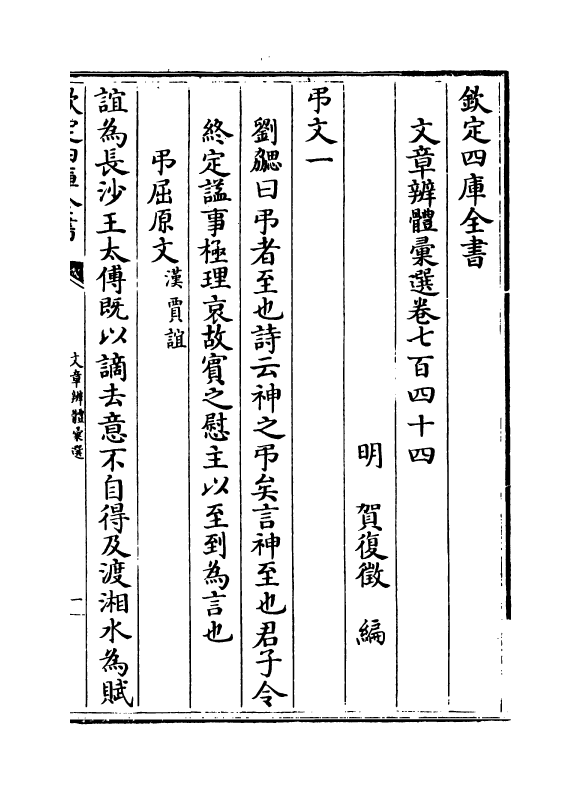 欽定四庫全書
文章辨體彙選卷七百四十四
明 賀復徵 編
弔文一
劉勰曰弔者至也詩云神之弔矣言神至也君子令
終定諡事極理哀故賓之慰主以至到為言也
弔屈原文 漢 賈誼
誼為長沙王太傅既以謫去意不自得及渡湘水為賦
欽定四庫全書
文章辨體彙選
一